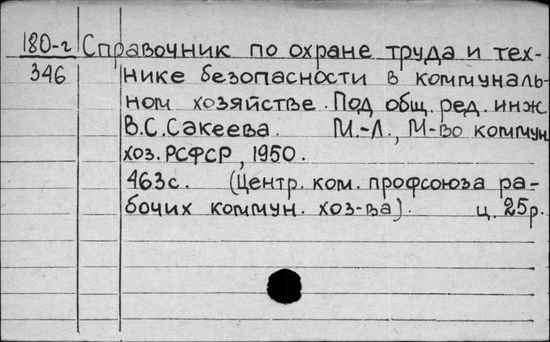 180-г Справочник по охране труда и тех-
346 нике безопасности в коммуналь-
ном хозяйстве. Под общ. ред. инж.
В.С.Сакеева. М.-Л., М-во коммун.
хоз. РСФСР, 1950.
463с. (Центр. ком. профсоюза ра-
бочих коммун. хоз-ва). ц. 25р.